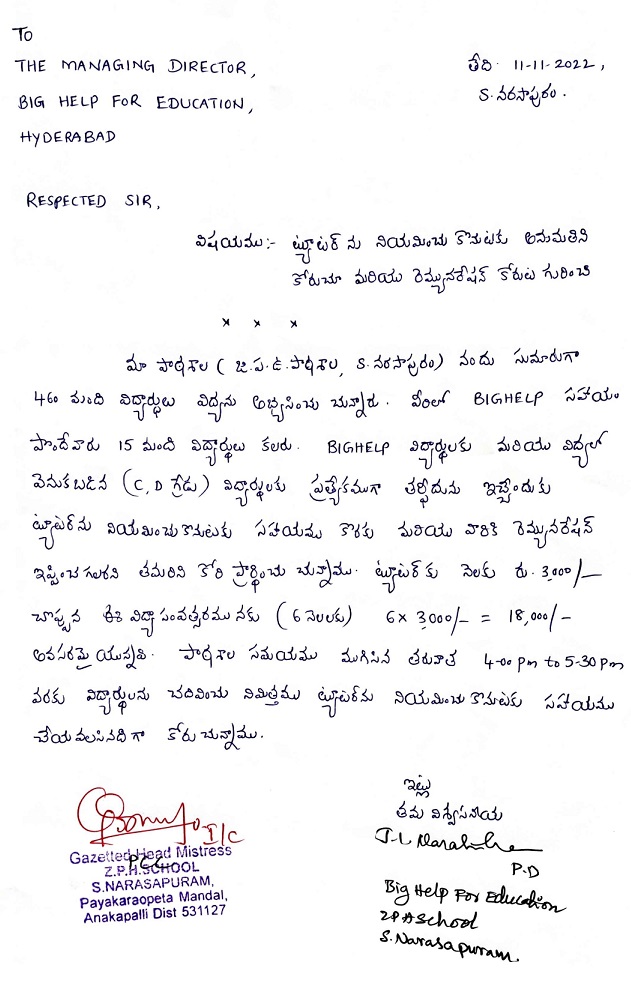 To
THE MANAGING DIRECTOR,
తేది 11-11-2022,
BIG HELP FOR EDUCATION,
S. నరసాపురం.
HYDERABAD
RESPECTED SIR,
విషయము:- ట్యూటర్ ను నియమించు కొనుటకు అనుమతిని
కోరుచూ మరియు రెమ్యునరేషన్ కోరుట గురించి
x x x
మా పాఠశాల ( జి.ప.ఉ.పాఠశాల, S.నరసాపురం) నందు సుమారుగా
460 మంది విద్యార్థులు విద్యను అభ్యసించు చున్నారు. వీరిలో BIGHELP సహాయం
పొందేవారు 15 మంది విద్యార్థులు కలరు. BIGHELP విద్యార్థులకు మరియు విద్యలో
వెనుకబడిన (C, D గ్రేడు) విద్యార్థులకు ప్రత్యేకముగా తర్ఫీదును ఇచ్చేందుకు
ట్యూటర్‌ను నియమించుకొనుటకు సహాయము కొరకు మరియు వారికి రెమ్యునరేషన్
ఇప్పించ గలరని తమరిని కోరి ప్రార్థించు చున్నాము. ట్యూటర్ కు నెలకు రు. 3,000/-
చొప్పున ఈ విద్యా సంవత్సరము నకు (6 నెలలకు) 6 x 3,000/- = 18,000/-
అవసరమై యున్నవి. పాఠశాల సమయము ముగిసిన తరువాత 4-00 pm to 5-30 pm
వరకు విద్యార్థులను చదివించు నిమిత్తము ట్యూటర్‌ను నియమించు కొనుటకు సహాయము
చేయ వలసినదిగా కోరు చున్నాము.
ఇట్లు
తమ విశ్వసనీయ
I/c
P.D
Gazetted Head Mistress
Z.P.H.SCHOOL
S.NARASAPURAM,
Payakaraopeta Mandal,
Anakapalli Dist 531127
Big Help For Education
ZPHSchool
S.Narasapuram.